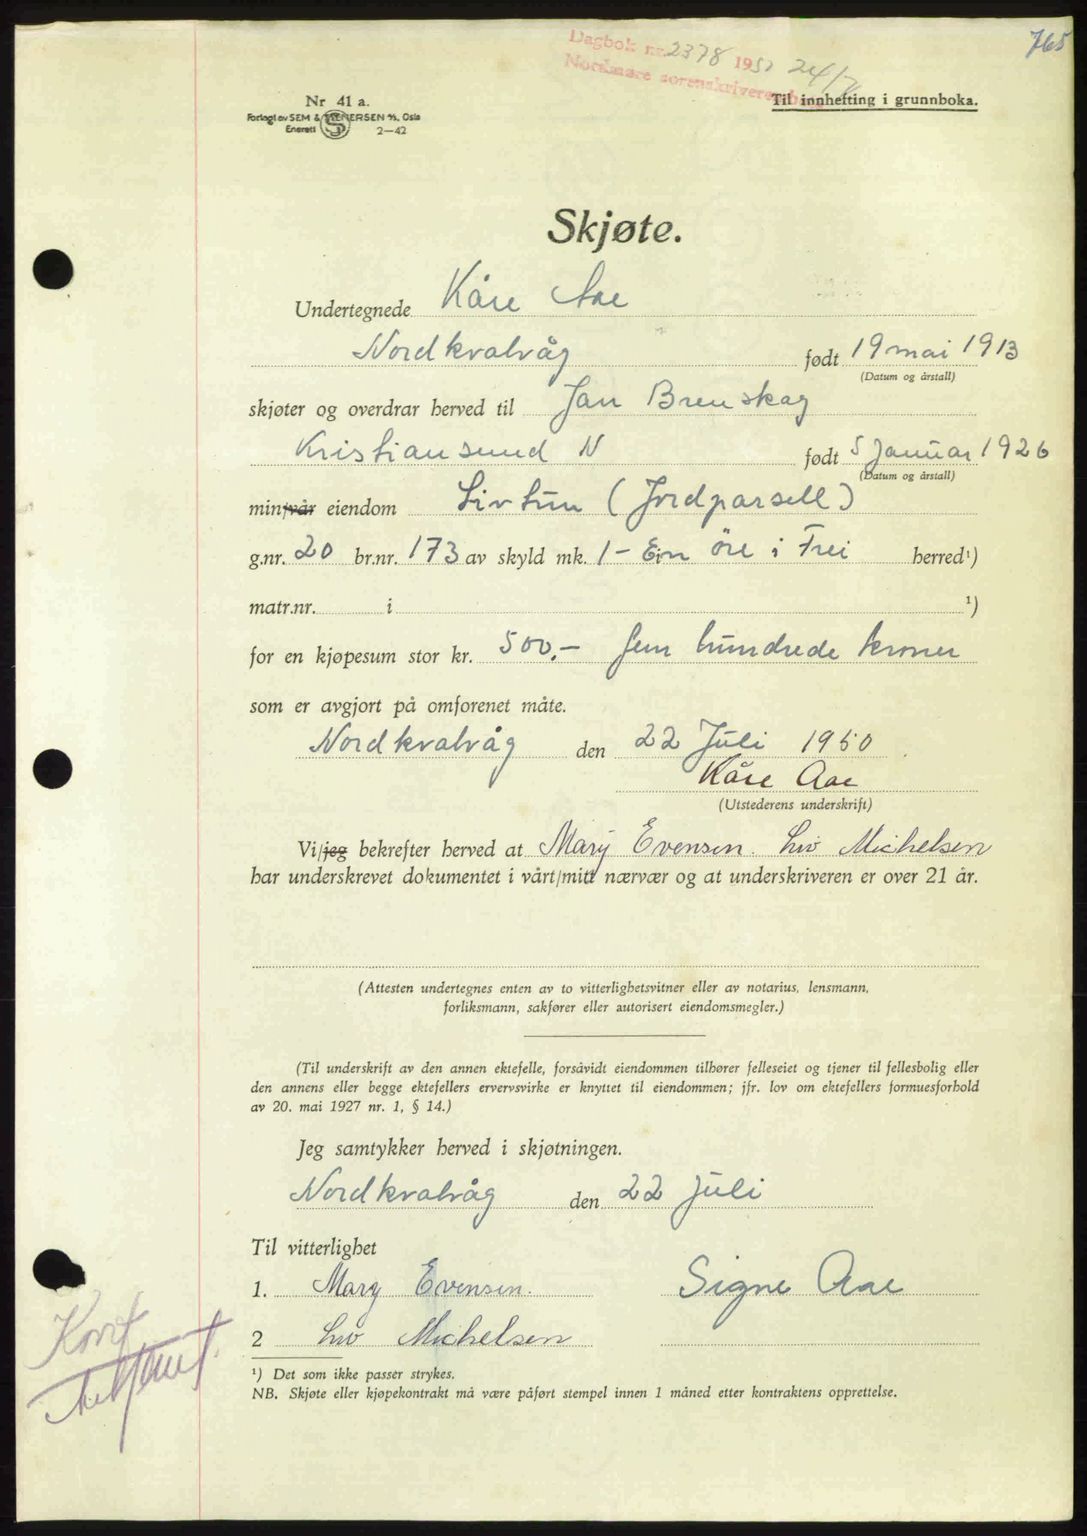 765
Dagbok nr. 2378 1950 24/7
Nordmøre sorenskriverembede
Til innhefting i grunnboka.
Nr 41 a.
Forlagt av SEM & STENERSEN A/S, Oslo
Enerett 2—42
Skjøte.
Undertegnede Kåre Aae
Nordkvalvåg født 19 mai 1913
(Datum og årstall)
skjøter og overdrar herved til Jan Brenskag
Kristiansund N født 5 Januar 1926
(Datum og årstall)
min/vår eiendom Livtun (Jordparsell)
g.nr. 20 br.nr. 173 av skyld mk. 1 - Ein öre i Frei herred¹)
matr.nr. i ¹)
for en kjøpesum stor kr. 500,- fem hundrede kroner
som er avgjort på omforenet måte.
Nordkvalvåg den 22 Juli 1950
Kåre Aae
(Utstederens underskrift)
Vi/jeg bekrefter herved at Mary Evensen. Liv Michelsen
har underskrevet dokumentet i vårt/mitt nærvær og at underskriveren er over 21 år.
(Attesten undertegnes enten av to vitterlighetsvitner eller av notarius, lensmann,
forliksmann, sakfører eller autorisert eiendomsmegler.)
(Til underskrift av den annen ektefelle, forsåvidt eiendommen tilhører felleseiet og tjener til fellesbolig eller
den annens eller begge ektefellers ervervsvirke er knyttet til eiendommen; jfr. lov om ektefellers formuesforhold
av 20. mai 1927 nr. 1, § 14.)
Jeg samtykker herved i skjøtningen.
Nordkvalvåg den 22 Juli
Til vitterlighet
1. Mary Evensen. Signe Aae
2 Liv Michelsen
¹) Det som ikke passer strykes.
NB. Skjøte eller kjøpekontrakt må være påført stempel innen 1 måned etter kontraktens opprettelse.